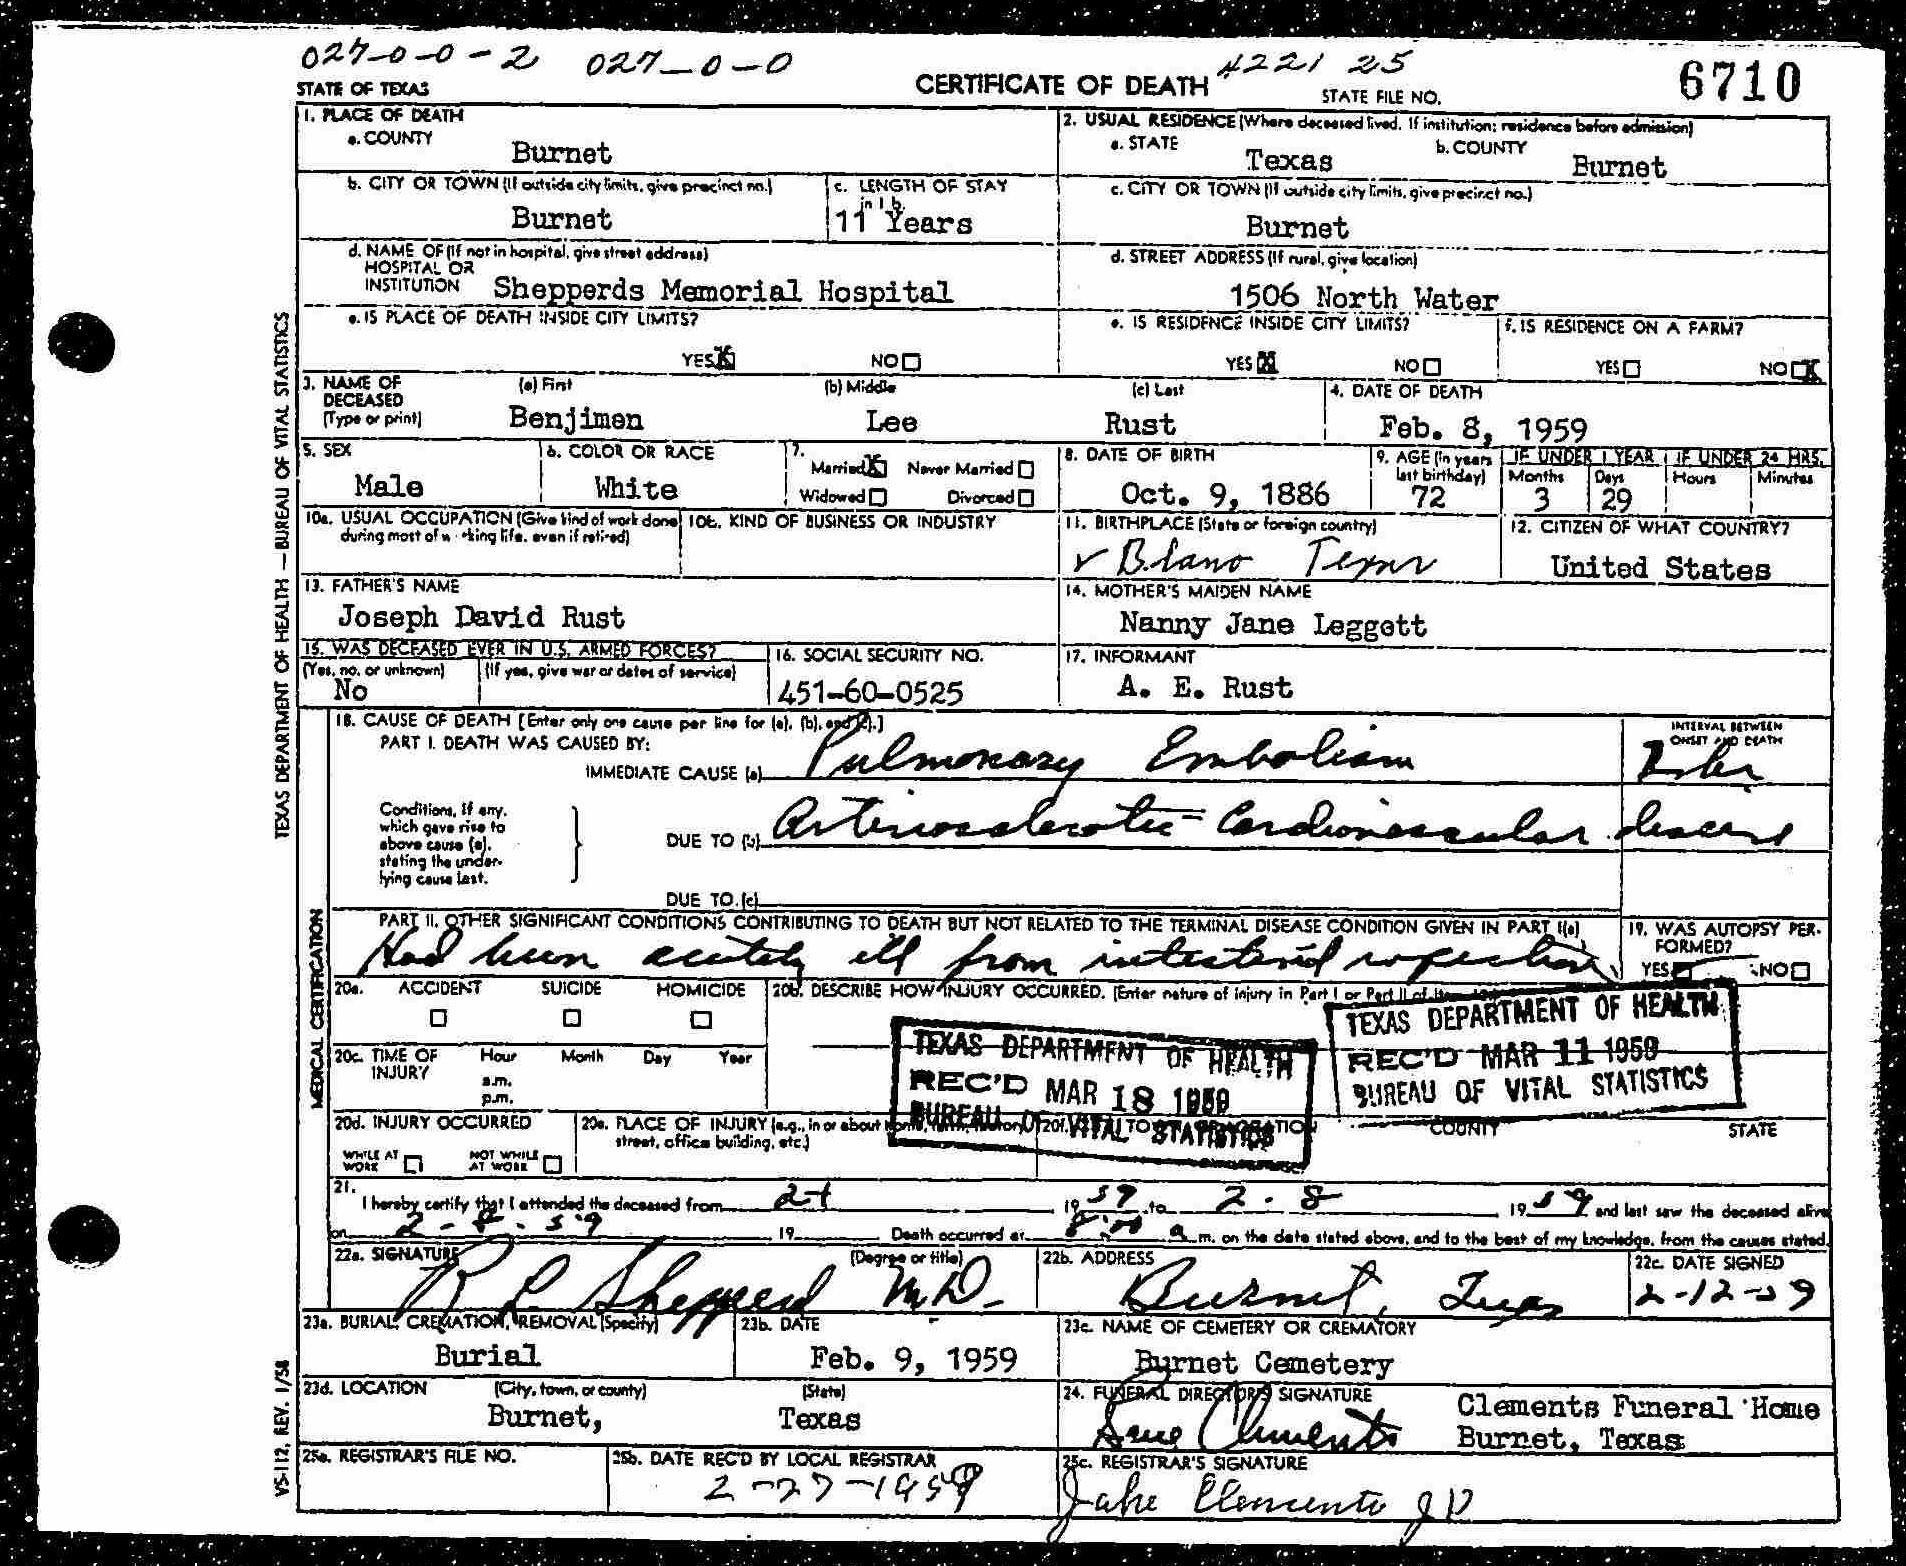 027-0-0-2 027-0-0 4221 25
STATE OF TEXAS CERTIFICATE OF DEATH STATE FILE NO. 6710
1. PLACE OF DEATH
a. COUNTY
Burnet
2. USUAL RESIDENCE (Where deceased lived. If institution: residence before admission)
a. STATE Texas b. COUNTY Burnet
b. CITY OR TOWN (If outside city limits, give precinct no.)
Burnet
c. LENGTH OF STAY
in 1 b.
11 Years
c. CITY OR TOWN (If outside city limits, give precinct no.)
Burnet
d. NAME OF (If not in hospital, give street address)
HOSPITAL OR
INSTITUTION Shepperds Memorial Hospital
d. STREET ADDRESS (If rural, give location)
1506 North Water
e. IS PLACE OF DEATH INSIDE CITY LIMITS?
YES NO
e. IS RESIDENCE INSIDE CITY LIMITS?
YES NO
f. IS RESIDENCE ON A FARM?
YES NO
3. NAME OF
DECEASED
(Type or print)
(a) First (b) Middle (c) Last
Benjimen Lee Rust
4. DATE OF DEATH
Feb. 8, 1959
5. SEX
Male
6. COLOR OR RACE
White
7.
Married Never Married
Widowed Divorced
8. DATE OF BIRTH
Oct. 9, 1886
9. AGE (in years
last birthday)
72
IF UNDER 1 YEAR IF UNDER 24 HRS.
Months Days Hours Minutes
3 29
10a. USUAL OCCUPATION (Give kind of work done
during most of working life, even if retired)
10b. KIND OF BUSINESS OR INDUSTRY
11. BIRTHPLACE (State or foreign country)
Blano Texas
12. CITIZEN OF WHAT COUNTRY?
United States
13. FATHER'S NAME
Joseph David Rust
14. MOTHER'S MAIDEN NAME
Nanny Jane Leggett
15. WAS DECEASED EVER IN U.S. ARMED FORCES?
(Yes, no, or unknown) (If yes, give war or dates of service)
No
16. SOCIAL SECURITY NO.
451-60-0525
17. INFORMANT
A. E. Rust
18. CAUSE OF DEATH [Enter only one cause per line for (a), (b), and (c).]
PART I. DEATH WAS CAUSED BY:
IMMEDIATE CAUSE (a) Pulmonary Embolism
INTERVAL BETWEEN
ONSET AND DEATH
Conditions, if any,
which gave rise to
above cause (a),
stating the under-
lying cause last.
DUE TO (b) Arteriosclerotic Cardiovascular disease
DUE TO (c)
PART II. OTHER SIGNIFICANT CONDITIONS CONTRIBUTING TO DEATH BUT NOT RELATED TO THE TERMINAL DISEASE CONDITION GIVEN IN PART I(a)
Had been acutely ill from intestinal infection
19. WAS AUTOPSY PER-
FORMED?
YES NO
20a. ACCIDENT SUICIDE HOMICIDE
20b. DESCRIBE HOW INJURY OCCURRED. (Enter nature of injury in Part I or Part II of
TEXAS DEPARTMENT OF HEALTH
REC'D MAR 18 1959
BUREAU OF VITAL STATISTICS
TEXAS DEPARTMENT OF HEALTH
REC'D MAR 11 1959
BUREAU OF VITAL STATISTICS
20c. TIME OF
INJURY
Hour Month Day Year
a.m.
p.m.
20d. INJURY OCCURRED
WHILE AT
WORK
NOT WHILE
AT WORK
20e. PLACE OF INJURY (e.g., in or about
street, office building, etc.)
20f. COUNTY STATE
21.
I hereby certify that I attended the deceased from 2-1 1959 to 2-8 1959 and last saw the deceased alive
on 2-8-59 19 Death occurred at a m. on the date stated above, and to the best of my knowledge, from the causes stated.
22a. SIGNATURE (Degree or title)
R L Shepperd M.D.
22b. ADDRESS
Burnet, Texas
22c. DATE SIGNED
2-12-59
23a. BURIAL, CREMATION, REMOVAL (Specify)
Burial
23b. DATE
Feb. 9, 1959
23c. NAME OF CEMETERY OR CREMATORY
Burnet Cemetery
23d. LOCATION (City, town, or county) (State)
Burnet, Texas
24. FUNERAL DIRECTOR'S SIGNATURE
Clements
Clements Funeral Home
Burnet, Texas
25a. REGISTRAR'S FILE NO.
25b. DATE REC'D BY LOCAL REGISTRAR
2-27-1959
25c. REGISTRAR'S SIGNATURE
Jake Clements JP
TEXAS DEPARTMENT OF HEALTH — BUREAU OF VITAL STATISTICS
MEDICAL CERTIFICATION
VS-112, REV. 1/58